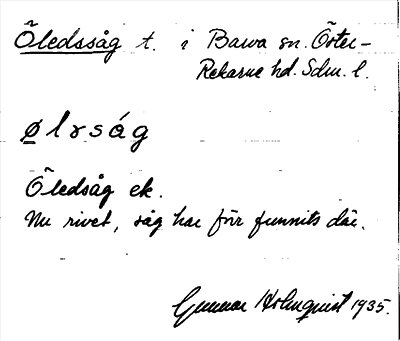 Öledssåg t. i Barva sn. Öster-
Rekarne hd. Sdm. l.
ølrság
Öledsåg ek.
Nu rivet, såg har förr funnits där.
Gunnar Holmquist 1935.